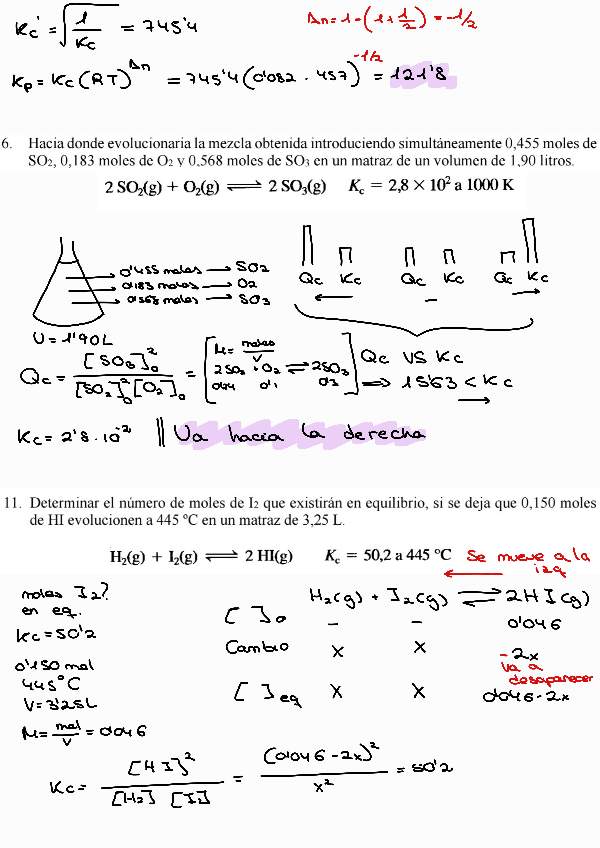 Kc' = √(1/Kc) = 745'4
Δn = 1 - (1 + 1/2) = -1/2
Kp = Kc (RT)^Δn = 745'4 (0'082 · 457)^-1/2 = 121'8
6. Hacia donde evolucionaria la mezcla obtenida introduciendo simultáneamente 0,455 moles de
SO₂, 0,183 moles de O₂ y 0,568 moles de SO₃ en un matraz de un volumen de 1,90 litros.
2 SO₂(g) + O₂(g) ⇌ 2 SO₃(g) Kc = 2,8 × 10² a 1000 K
0'455 moles → SO2
0'183 moles → O2
0'568 moles → SO3
Qc Kc Qc Kc Qc Kc
← – →
V = 1'90L
Qc = [SO3]₀² / [SO2]₀² [O2]₀ = [M = moles/V 2SO2 + O2 ⇌ 2SO3 0'24 0'1 0'3] Qc VS Kc
⇒ 15'63 < Kc
→
Kc = 2'8 · 10^-2 || Va hacia la derecha
11. Determinar el número de moles de I₂ que existirán en equilibrio, si se deja que 0,150 moles
de HI evolucionen a 445 ºC en un matraz de 3,25 L.
H₂(g) + I₂(g) ⇌ 2 HI(g) Kc = 50,2 a 445 ºC Se mueve a la
← izq
moles I2?
en eq.
Kc = 50'2
0'150 mol
445°C
V = 3'25L
M = mol/V = 0'046
H2(g) + I2(g) ⇌ 2HI(g)
[ ]₀ – – 0'046
Cambio x x -2x
va a
desaparecer
[ ]eq x x 0'046-2x
Kc = [HI]² / [H2] [I2] = (0'046 - 2x)² / x² = 50'2